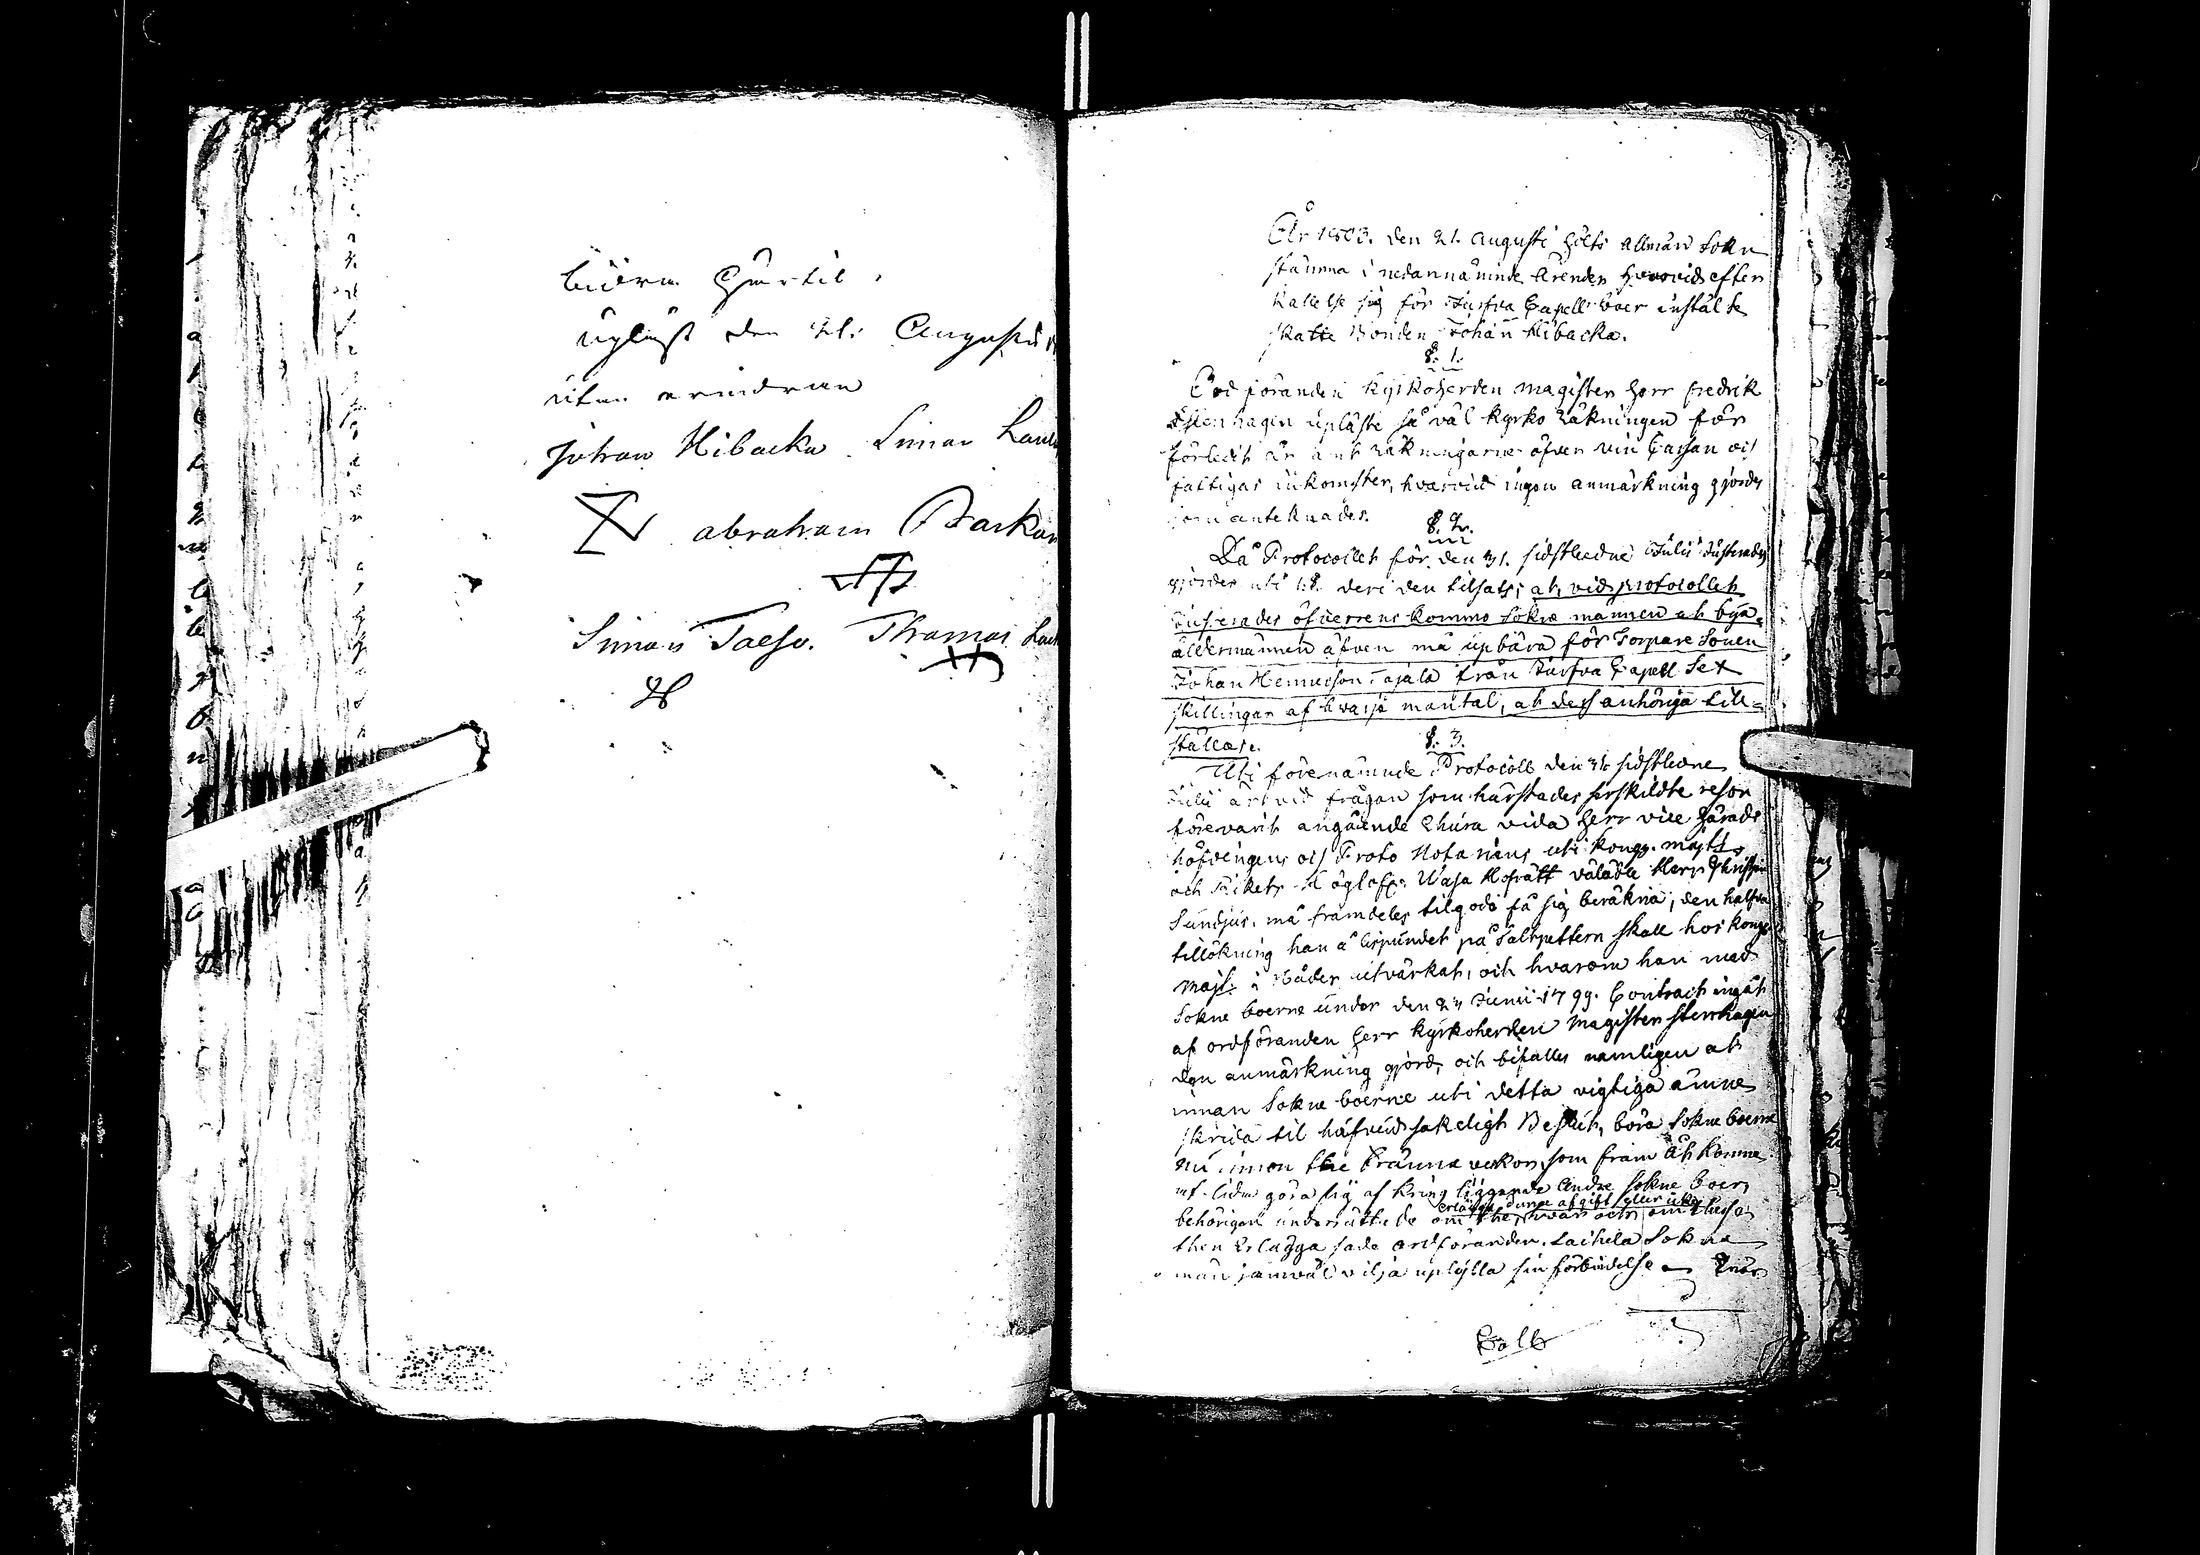 biörn Härtil.
Uplest den 21. Augusti
utan erindran
Johan Hibacka Simon
abraham
Simon Taeso. Thomas
År 1803. den 21. Augusti hölts allmän Sokn
stämma i nedannämnde ärender hvarvid efter
kallelse sig för Jurfva Capells boer instälte
skatte Bonden Johan Hibacka.
§. 1.
Ord föranden Kyrkoherden Magister Herr Fredrik
Stenhagen upläste så väl kyrko Räkningen för
förledit år samt räkningarne öfver vin Cassan och
fattigas inkomster, hvarvid ingen anmärkning gjordes
som anteknades.
§. 2.
Då Protocollet för den 31. sidstledne Julii Justerades
gjordes uti 1.§. deri den tilsatts; at, vid protocollets
Justerades öfverens kommo Sokne männen at bya=
åldermännen äfven må upbära för Torpare Sonen
Johan Henricson Tajala från Jurfva Capell Sex
skillingar af hvarje mantal, at dess anhöriga till=
ställas.
§. 3.
Uti förenämnde Protocoll den 31 sidstledne
Julii är vid frågan som härstädes särskildte resor
förevarit angående Huru vida Herr vice Härads
höfdingens och Proto Notariens uti Kongg. Majts
och Rikets Höglofl. Wasa Hofrätt välädle Herr Christian
Sundius, må framdeles tilgodo få sig beräkna, den halfva
tillökning han å lispundet på Saltpettern skall hos Kongl.
Majt. i Nåder utvärkat, och hvarom han med
Sokne boerne under den 24 Junii 1799. Contract ingåt
af ordföranden Herr kyrkoherden Magister Stenhagen
den anmärkning gjord, och bifalles namligen at
innan Sokne boerne uti detta vigtiga ämne
skrida til hufvudsakeligt Beslut, böra Sokne boerne
nu innom tre Tränne vekor, som fram åt komma
göra sig af kring liggande Andre Sokne boer
erlägga denna afgift eller icke
behörigen underrättade om the, hvar och om thesse
then Erlägga sade ordföranden. Laihela Sokne
män jämväl vilja upfylla sin förbindelse